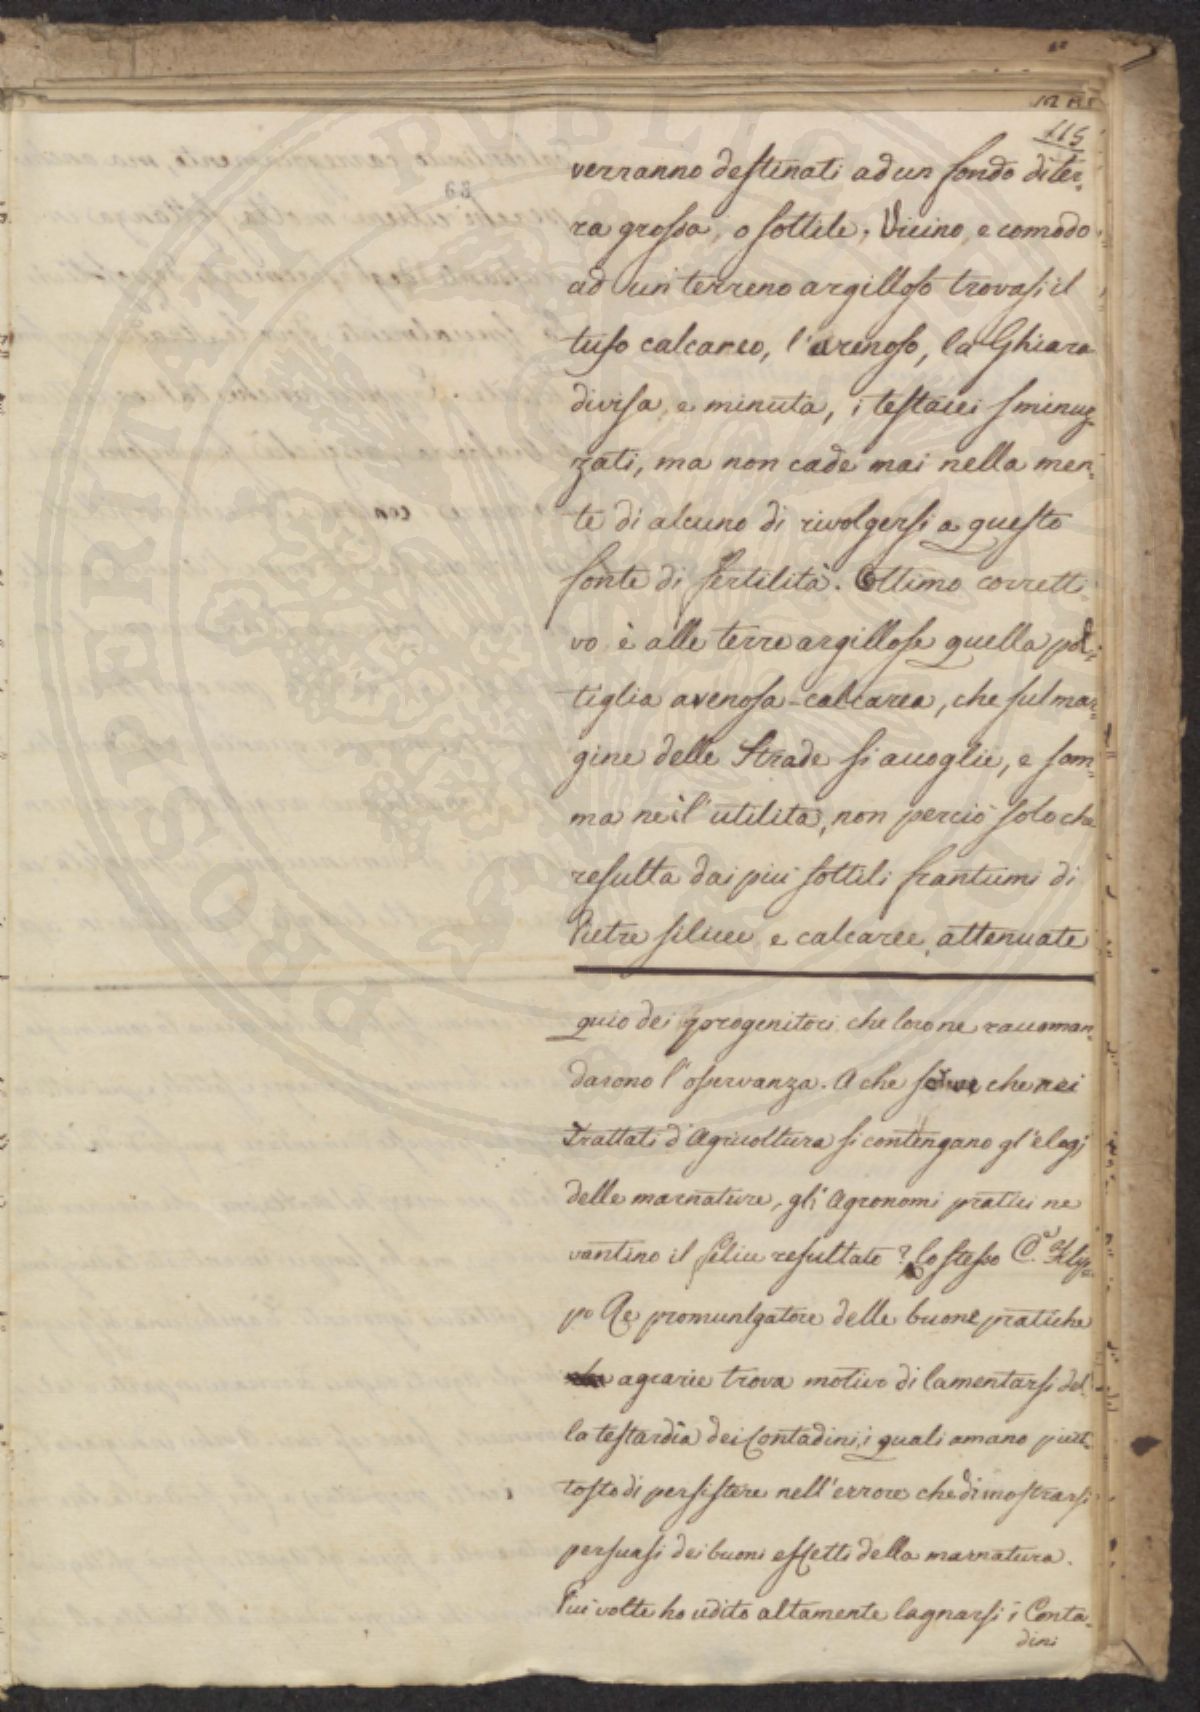 115
68
verranno destinati ad un fondo di ter-
ra grossa, o sottile. Vicino, e comodo
ad un terreno argilloso trovasi il
tufo calcareo, l'arenoso, la Ghiara
divisa, e minuta, i testacei sminuz-
zati, ma non cade mai nella men-
te di alcuno di rivolgersi a questo
fonte di fertilità. Ottimo corretti-
vo è alle terre argillose quella pol-
tiglia arenosa-calcarea, che sul mar-
gine delle Strade si accoglie, e som-
ma ne è l'utilità, non perciò solo che
resulta dai più sottili frantumi di
Pietre silicee, e calcaree, attenuate
quio dei progenitori che loro ne raccoman-
darono l'osservanza. A che serve che nei
Trattati d'Agricoltura si contengano gl'elogi
delle marnature, gli Agronomi pratici ne
vantino il felice resultato? Lo stesso
po Re promunlgatore delle buone pratiche
agrarie trova motivo di lamentarsi del-
la testardìa dei Contadini, i quali amano piut-
tosto di persistere nell'errore che dimostrarsi
persuasi dei buoni effetti della marnatura.
Più volte ho udito altamente lagnarsi i Conta-
dini
PROSPERITATI PUBLICAE